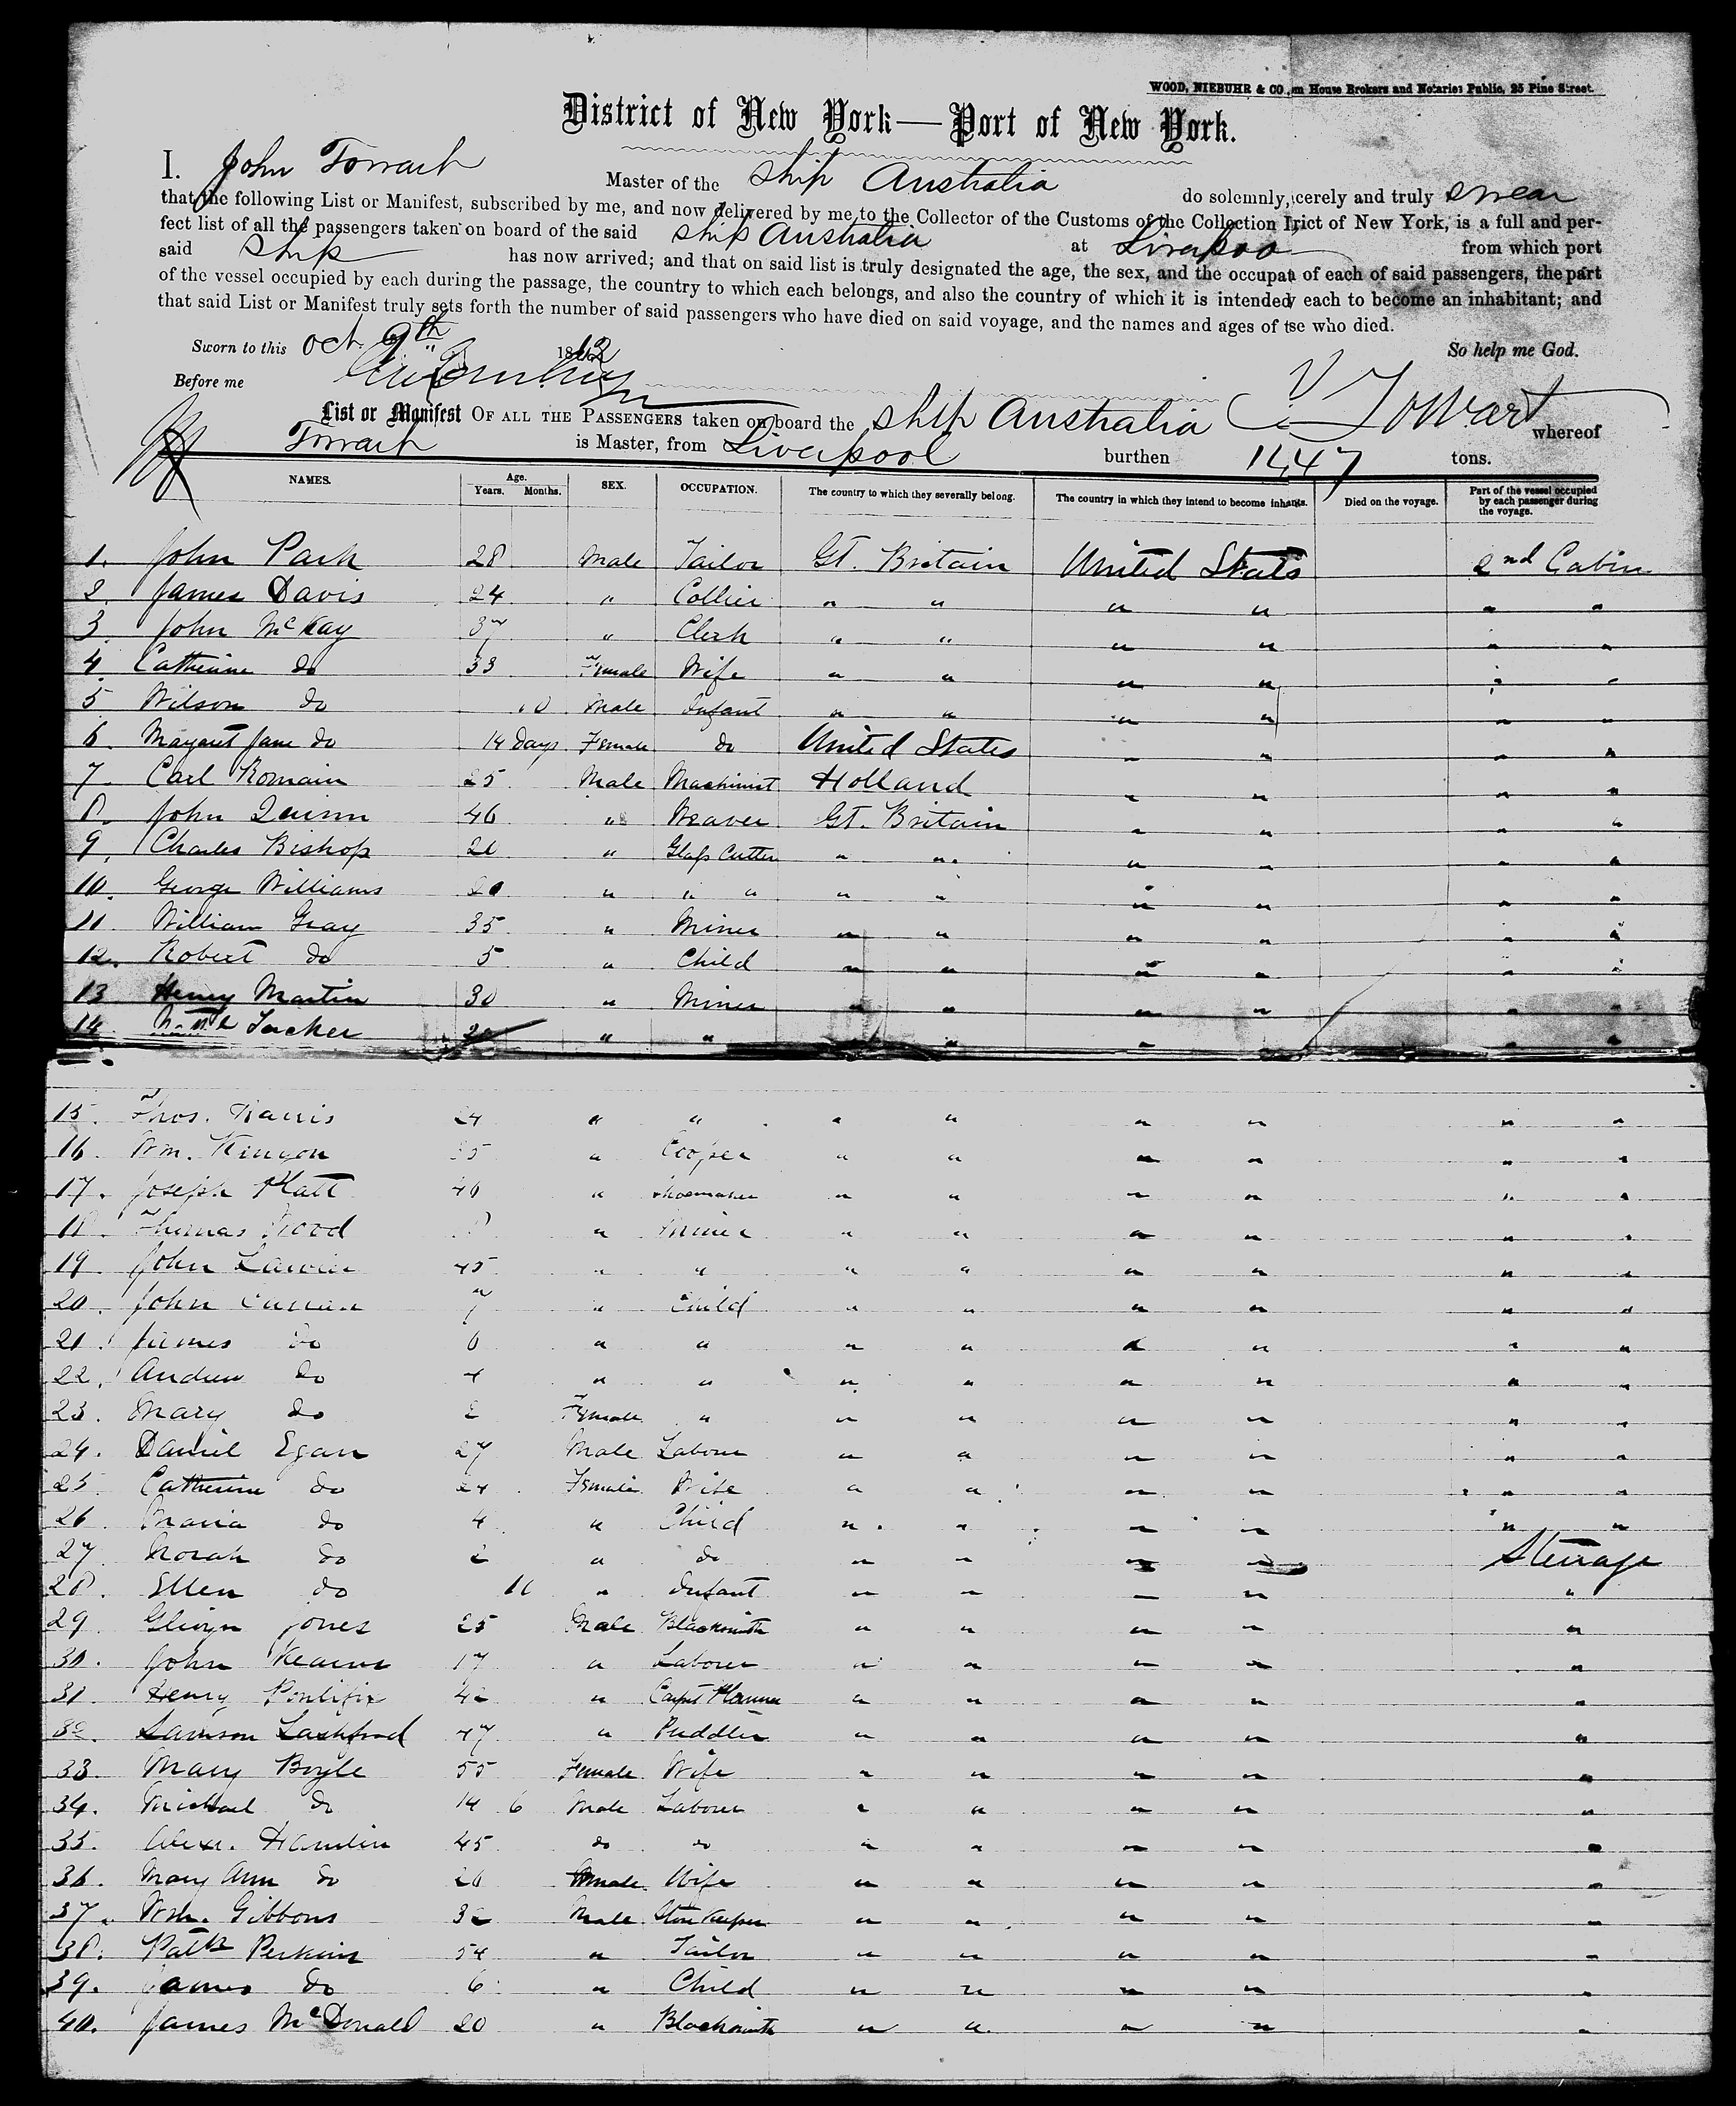 WOOD, NIEBUHR & CO., m House Brokers and Notaries Public, 25 Pine Street.
District of New York—Port of New York.
I. John Towart Master of the Ship Australia do solemnly, cerely and truly swear
that the following List or Manifest, subscribed by me, and now delivered by me to the Collector of the Customs of the Collection trict of New York, is a full and per-
fect list of all the passengers taken on board of the said Ship Australia at Liverpool from which port
said Ship has now arrived; and that on said list is truly designated the age, the sex, and the occupat of each of said passengers, the part
of the vessel occupied by each during the passage, the country to which each belongs, and also the country of which it is intended y each to become an inhabitant; and
that said List or Manifest truly sets forth the number of said passengers who have died on said voyage, and the names and ages of se who died.
Sworn to this Oct. 9th 18 So help me God.
Before me J Towart
List or Manifest OF ALL THE PASSENGERS taken on board the Ship Australia whereof
Towart is Master, from Liverpool burthen 1447 tons.
NAMES. Age. Years. Months. SEX. OCCUPATION. The country to which they severally belong. The country in which they intend to become inhabts. Died on the voyage. Part of the vessel occupied by each passenger during the voyage.
1. John Park 28 Male Tailor Gt. Britain United States 2nd Cabin
2. James Davis 24 " Collier " " " " " "
3. John McKay 37 " Clerk " " " " " "
4. Catherine do 33 Female Wife " " " " " "
5 Wilson do 10 Male Infant " " " " " "
6. Margaret Jane do 14 Days Female do United States " " " "
7. Carl Romain 25 Male Machinist Holland " " " "
8. John Quinn 46 " Weaver Gt. Britain " " " "
9. Charles Bishop " Glass Cutter " " " " " "
10. George Williams 20 " " " " " " " " "
11. William Gray 35 " Miner " " " " " "
12. Robert do 5 " Child " " " " " "
13 Henry Martin 30 " Miner " " " " " "
14. Tucker 20 " " " " " " "
15. Thos. Harris 24 " " " " " " " "
16. Wm. Kenyon " Cooper " " " " " "
17. Joseph Platt 40 " Shoemaker " " " " " "
18. Thomas Wood " Miner " " " " " "
19. John 45 " " " " " " " "
20. John Curran 7 " Child " " " " " "
21. James do 6 " " " " " " " "
22. Andrew do 4 " " " " " " " "
23. Mary do 2 Female " " " " " " "
24. Daniel Egan 27 Male Labour " " " " " "
25. Catherine do 24 Female Wife " " " " " "
26. Maria do 4 " Child " " " " " "
27. Norah do 2 " do " " " " Steerage
28. Ellen do " Infant " " " " "
29. Jones 25 Male Blacksmith " " " " "
30. John 17 " Laborer " " " " "
31. Henry Pontifix 42 " " " " " "
32. Samson Lashford 47 " Puddler " " " " "
33. Mary Boyle 55 Female Wife " " " " "
34. Michael do 14 6 Male Laborer " " " " "
35. Alexr. Hamlin 45 do do " " " " "
36. Mary Ann do Female Wife " " " " "
37. Wm. Gibbons 32 Male Store Keeper " " " " "
38. Patk Perkins 54 " Tailor " " " " "
39. James do 6 " Child " " " " "
40. James McDonald 20 " Blacksmith " " " " "